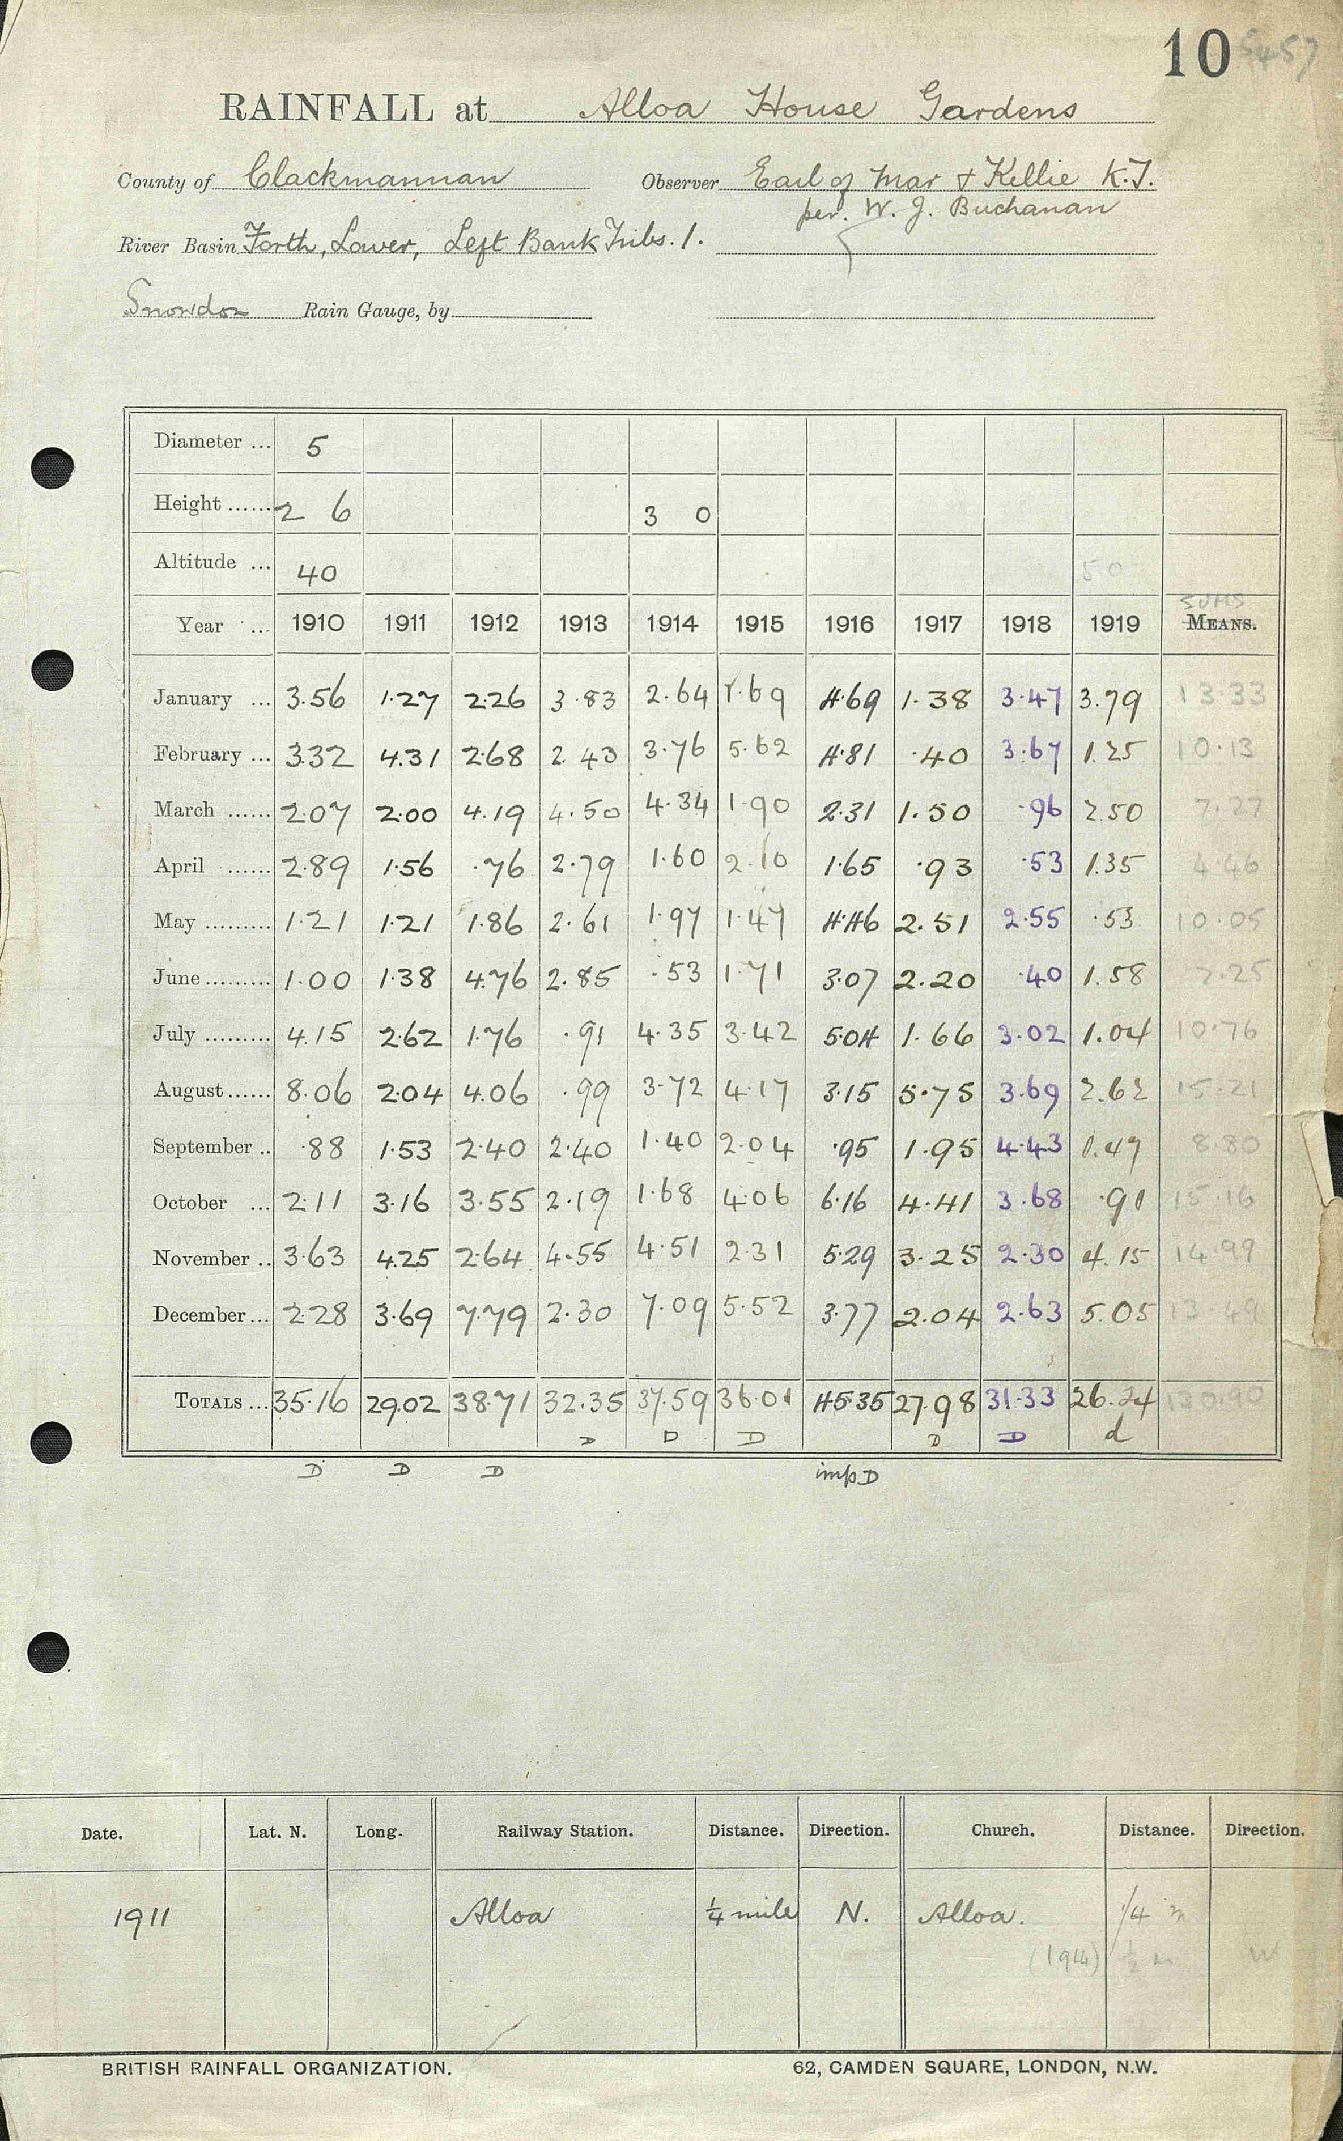 10 5457
RAINFALL at Alloa House Gardens
County of Clackmannan Observer Earl of Mar & Kellie K.T.
per. W. J. Buchanan
River Basin Forth, Lower, Left Bank Tribs. 1.
Snowdon Rain Gauge, by
Diameter ... 5
Height ...... 2 6 3 0
Altitude ... 40 50
SUMS
Year ... 1910 1911 1912 1913 1914 1915 1916 1917 1918 1919 MEANS.
January ... 3.56 1.27 2.26 3.83 2.64 1.69 4.69 1.38 3.47 3.79 13.33
February ... 3.32 4.31 2.68 2.43 3.76 5.62 4.81 .40 3.67 1.25 10.13
March ...... 2.07 2.00 4.19 4.50 4.34 1.90 2.31 1.50 .96 2.50 7.27
April ...... 2.89 1.56 .76 2.79 1.60 2.10 1.65 .93 .53 1.35 4.46
May ......... 1.21 1.21 1.86 2.61 1.97 1.47 4.46 2.51 2.55 .53 10.05
June ......... 1.00 1.38 4.76 2.85 .53 1.71 3.07 2.20 .40 1.58 7.25
July ......... 4.15 2.62 1.76 .91 4.35 3.42 5.04 1.66 3.02 1.04 10.76
August ...... 8.06 2.04 4.06 .99 3.72 4.17 3.15 5.75 3.69 2.62 15.21
September .. .88 1.53 2.40 2.40 1.40 2.04 .95 1.95 4.43 1.47 8.80
October ... 2.11 3.16 3.55 2.19 1.68 4.06 6.16 4.41 3.68 .91 15.16
November .. 3.63 4.25 2.64 4.55 4.51 2.31 5.29 3.25 2.30 4.15 14.99
December ... 2.28 3.69 7.79 2.30 7.09 5.52 3.77 2.04 2.63 5.05 13.49
TOTALS ... 35.16 29.02 38.71 32.35 37.59 36.01 45.35 27.98 31.33 26.24 130.90
D D D D D d
D D D imp D
Date. Lat. N. Long. Railway Station. Distance. Direction. Church. Distance. Direction.
1911 Alloa ¼ mile N. Alloa. 1/4 m
(1914) ½ m W
BRITISH RAINFALL ORGANIZATION. 62, CAMDEN SQUARE, LONDON, N.W.